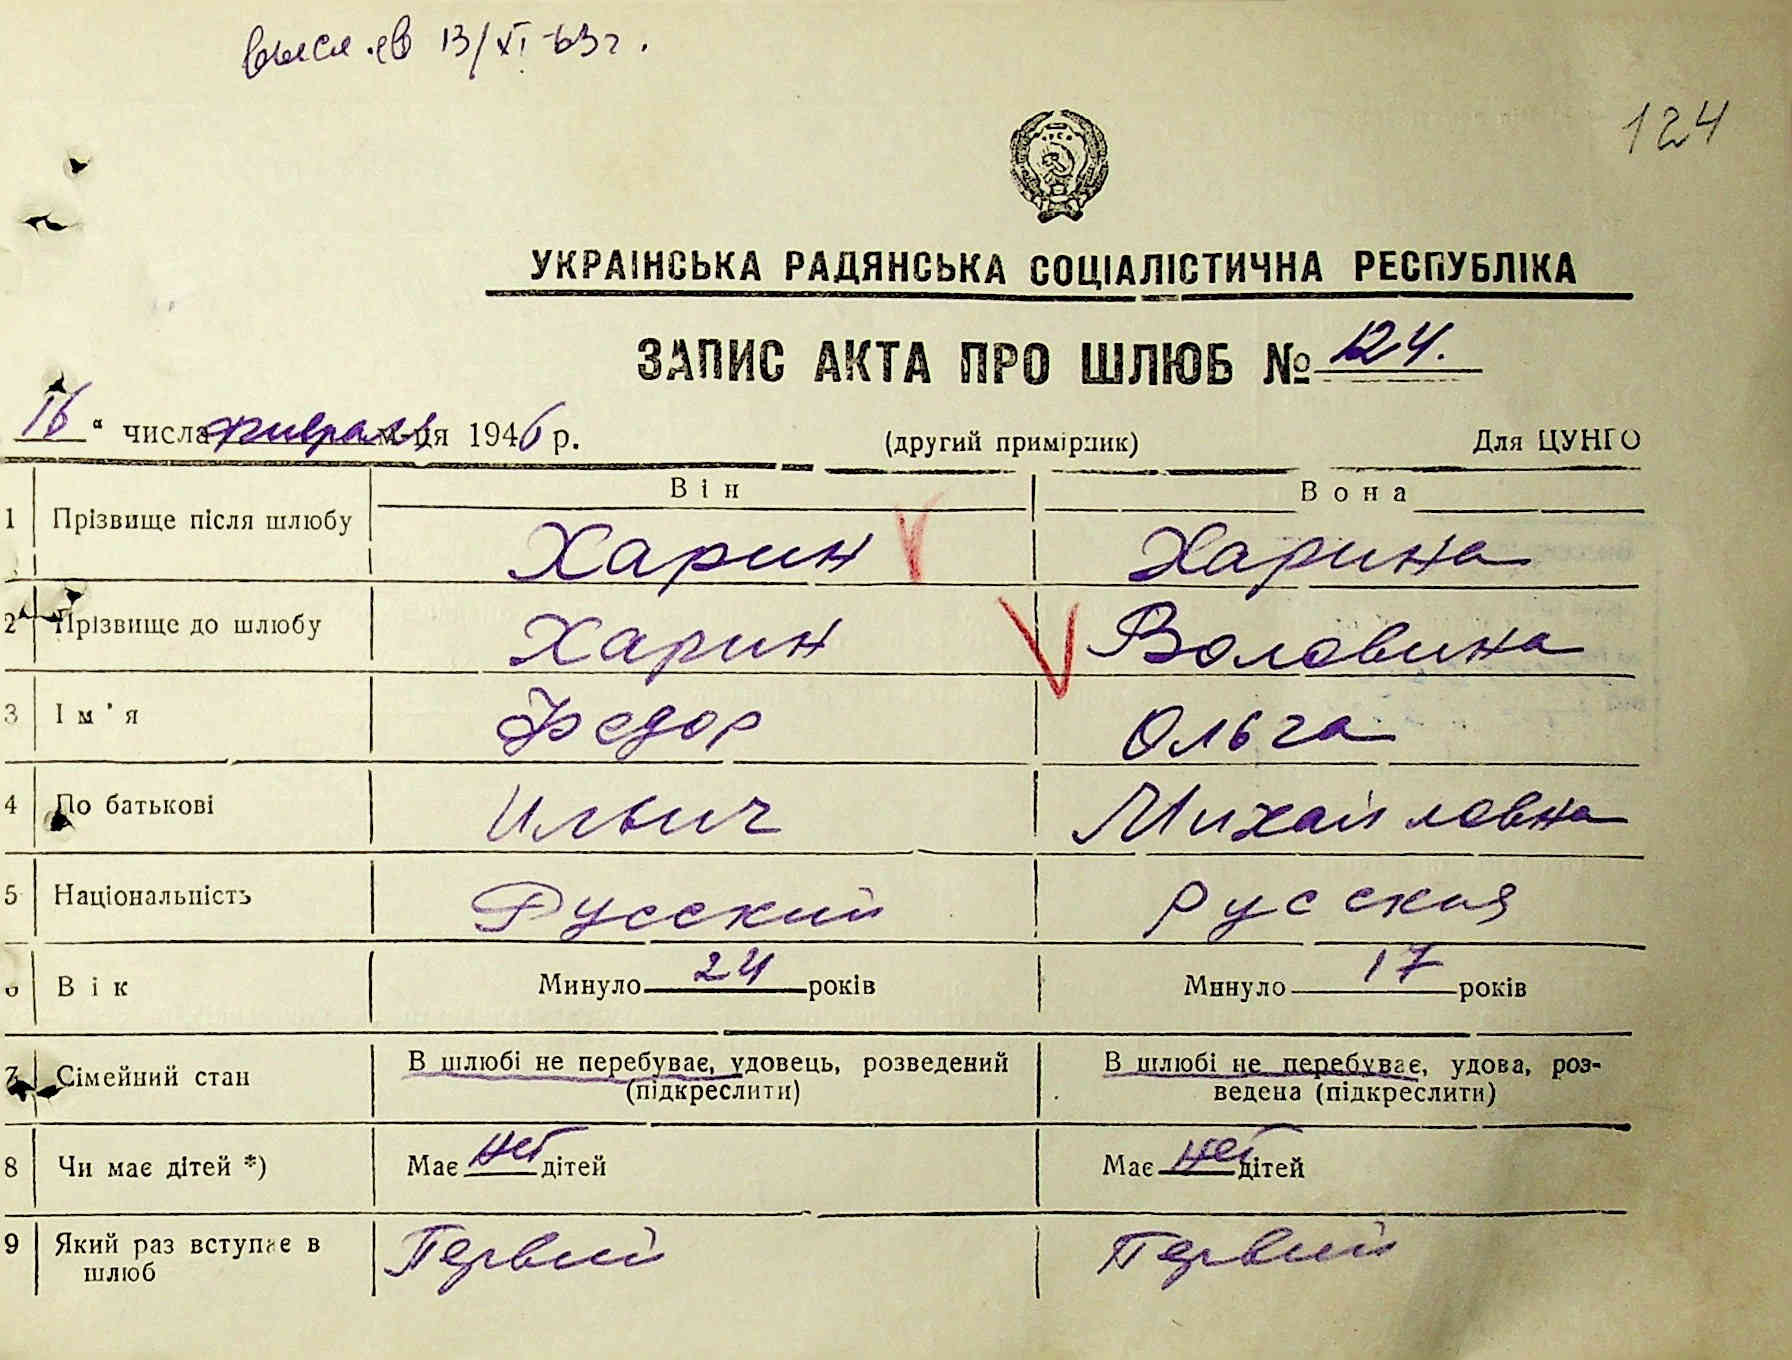 13/XI-63г.
124
УКРАЇНСЬКА РАДЯНСЬКА СОЦІАЛІСТИЧНА РЕСПУБЛІКА
ЗАПИС АКТА ПРО ШЛЮБ № 124.
16 " числа февраля м-ця 1946 р. (другий примірник) Для ЦУНГО
Він Вона
1 Прізвище після шлюбу Харин Харина
2 Прізвище до шлюбу Харин Воловина
3 Ім'я Федор Ольга
4 По батькові Ильич Михайловна
5 Національність Русский Русская
6 Вік Минуло 24 років Минуло 17 років
7 Сімейний стан В шлюбі не перебуває, удовець, розведений В шлюбі не перебуває, удова, роз-
(підкреслити) ведена (підкреслити)
8 Чи має дітей *) Має нет дітей Має нет дітей
9 Який раз вступає в Первый Первый
шлюб